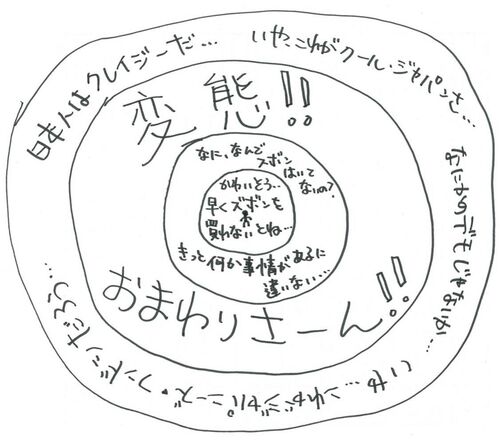 日本人はクレイジーだ…
いやこれがクール・ジャパンさ…
なにかのデモじゃないか…
いや…これがジャパニーズ・フンドシだろう…
変態!!
おまわりさーん!!
なに、なんで
ズボン
はいて
ないの?
きっと何か事情があるに
違いない…
かわいそう…
早くズボンを
買わないとね…